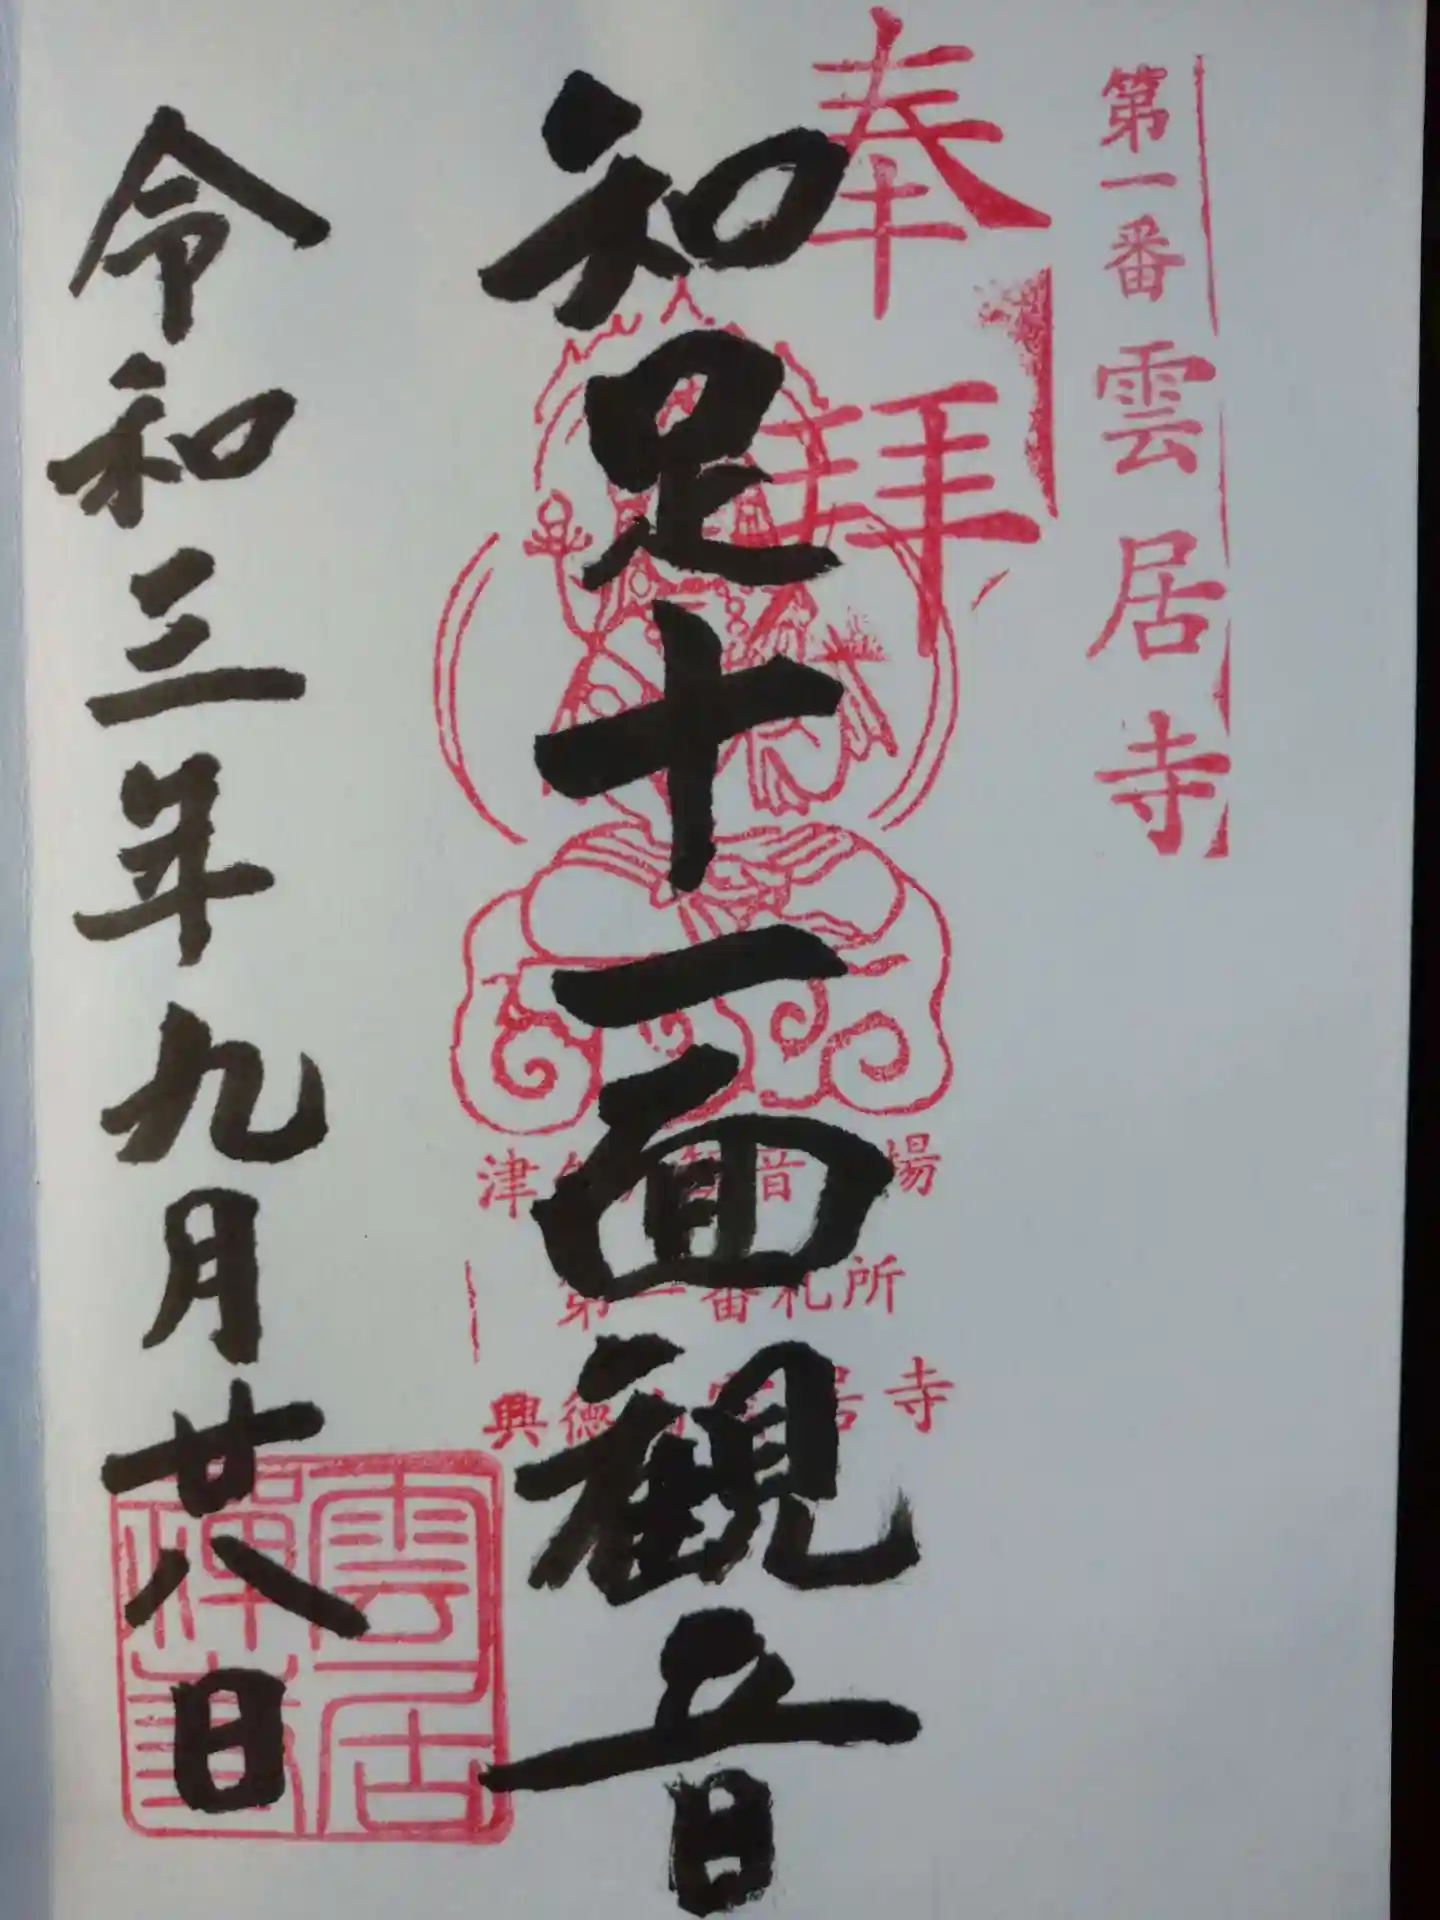 第一番 雲居寺
奉拝
知足十一面観音
津 観音 場
第一番札所
興徳山雲居寺
令和三年九月廿八日
雲居
禅寺